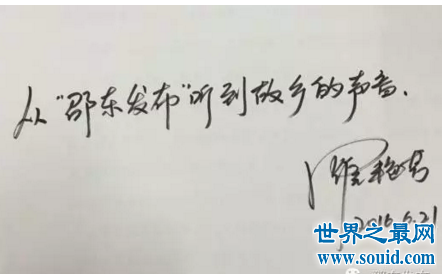 从“邵东发布”听到故乡的声音.
2016.6.21
世界之最网
www.souid.com